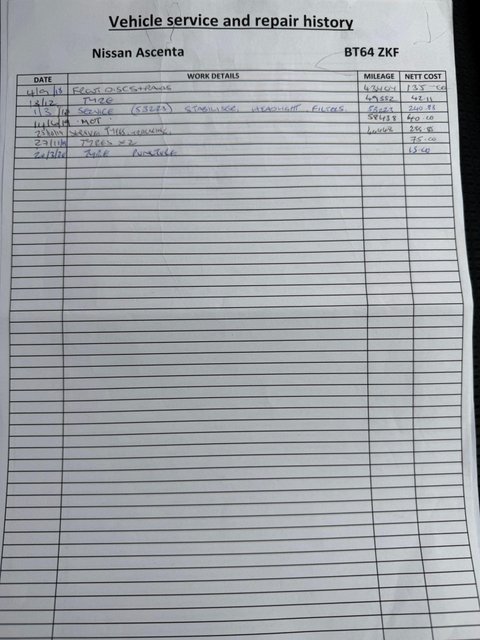 Vehicle service and repair history
Nissan Ascenta BT64 ZKF
DATE WORK DETAILS MILEAGE NETT COST
4/9/18 FRONT DISCS+PADS 43404 135-00
TYRE 49552 42.11
SERVICE (53223) STABILISER, HEADLIGHT, FILTERS. 240.83
MOT 58438 40.00
TYRES,
27/11/19 TYRES x2 75.00
20/3/20 TYRE PUNCTURE 15.00